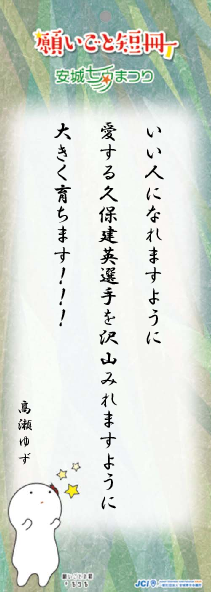 願いごと短冊
安城七夕まつり
いい人になれますように
愛する久保建英選手を沢山みれますように
大きく育ちます！！！
高瀬ゆず
JCI